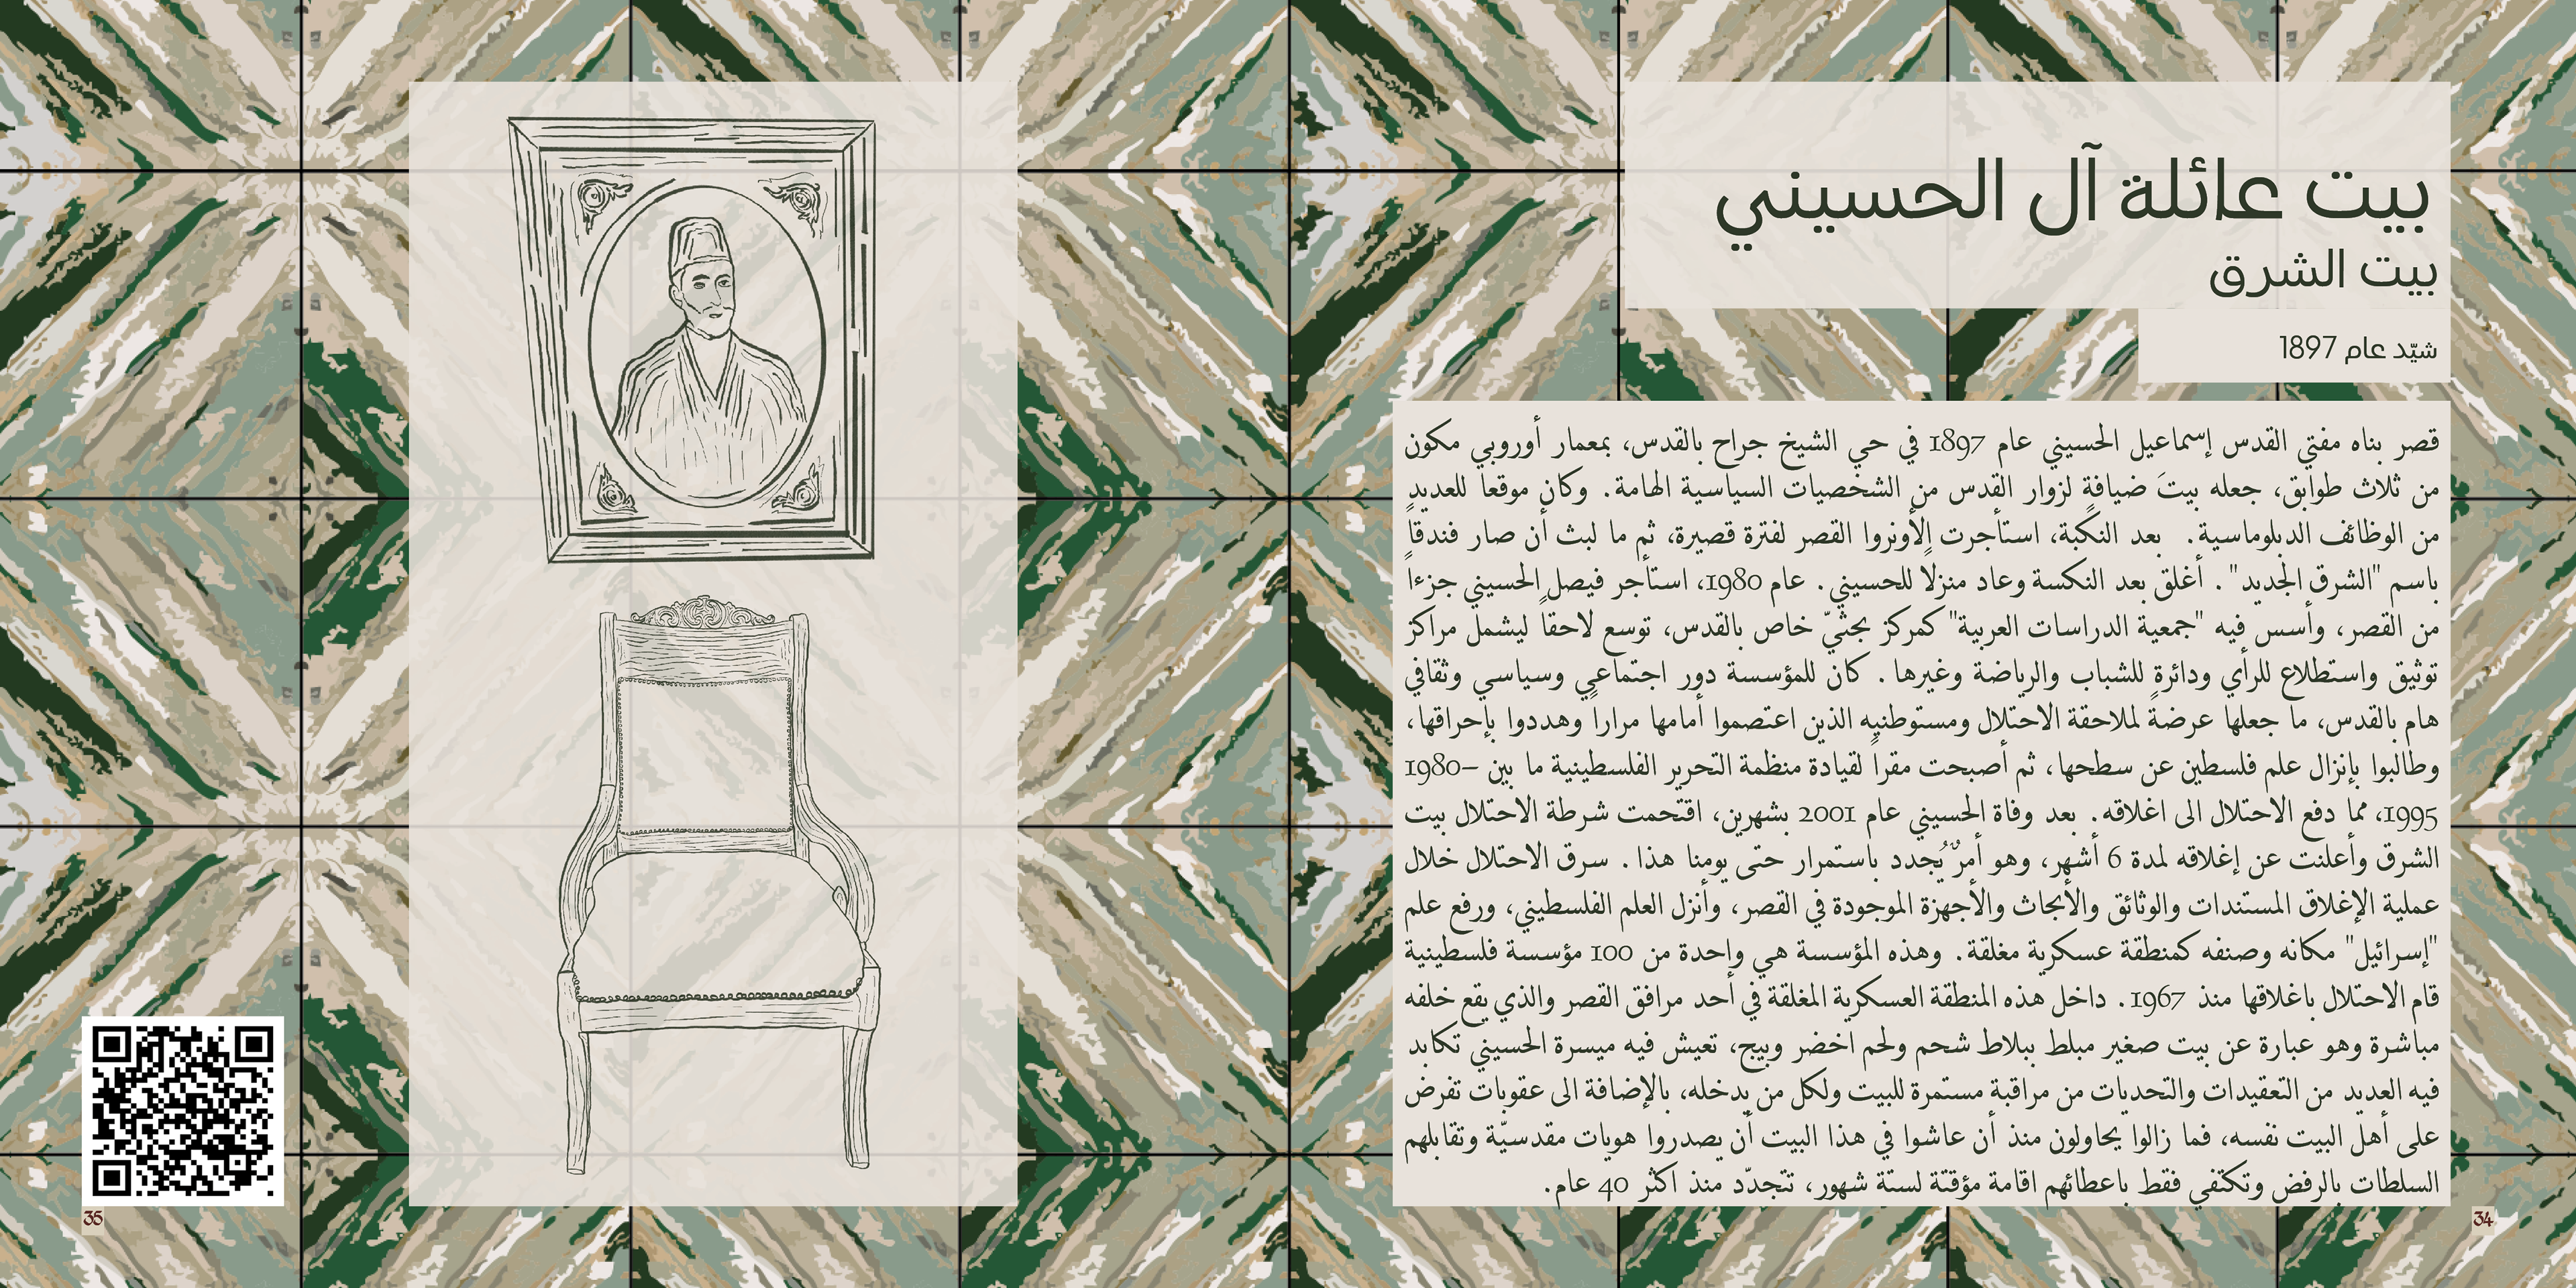 بيت عائلة آل الحسيني
بيت الشرق
شيّد عام 1897
قصر بناه مفتي القدس إسماعيل الحسيني عام 1897 في حي الشيخ جراح بالقدس، بمعمار أوروبي مكون
من ثلاث طوابق، جعله بيتَ ضيافةٍ لزوار القدس من الشخصيات السياسية الهامة. وكان موقعاً للعديد
من الوظائف الدبلوماسية. بعد النكبة، استأجرت الأونروا القصر لفترة قصيرة، ثم ما لبث أن صار فندقاً
باسم "الشرق الجديد". أغلق بعد النكسة وعاد منزلاً للحسيني. عام 1980، استأجر فيصل الحسيني جزءاً
من القصر، وأسس فيه "جمعية الدراسات العربية" كمركز بحثيّ خاص بالقدس، توسع لاحقاً ليشمل مراكز
توثيق واستطلاع للرأي ودائرة للشباب والرياضة وغيرها. كان للمؤسسة دور اجتماعي وسياسي وثقافي
هام بالقدس، ما جعلها عرضةً لملاحقة الاحتلال ومستوطنيه الذين اعتصموا أمامها مراراً وهددوا بإحراقها،
وطالبوا بإنزال علم فلسطين عن سطحها، ثم أصبحت مقراً لقيادة منظمة التحرير الفلسطينية ما بين 1980–
1995، مما دفع الاحتلال الى اغلاقه. بعد وفاة الحسيني عام 2001 بشهرين، اقتحمت شرطة الاحتلال بيت
الشرق وأعلنت عن إغلاقه لمدة 6 أشهر، وهو أمرٌ يُجدد باستمرار حتى يومنا هذا. سرق الاحتلال خلال
عملية الإغلاق المستندات والوثائق والأبحاث والأجهزة الموجودة في القصر، وأنزل العلم الفلسطيني، ورفع علم
"إسرائيل" مكانه وصنفه كمنطقة عسكرية مغلقة. وهذه المؤسسة هي واحدة من 100 مؤسسة فلسطينية
قام الاحتلال باغلاقها منذ 1967. داخل هذه المنطقة العسكرية المغلقة في أحد مرافق القصر والذي يقع خلفه
مباشرة وهو عبارة عن بيت صغير مبلط ببلاط شحم ولحم اخضر وبيج، تعيش فيه ميسرة الحسيني تكابد
فيه العديد من التعقيدات والتحديات من مراقبة مستمرة للبيت ولكل من يدخله، بالإضافة الى عقوبات تفرض
على أهل البيت نفسه، فما زالوا يحاولون منذ أن عاشوا في هذا البيت أن يصدروا هويات مقدسيّة وتقابلهم
السلطات بالرفض وتكتفي فقط باعطائهم اقامة مؤقتة لستة شهور، تتجدّد منذ اكثر 40 عام.
34
35